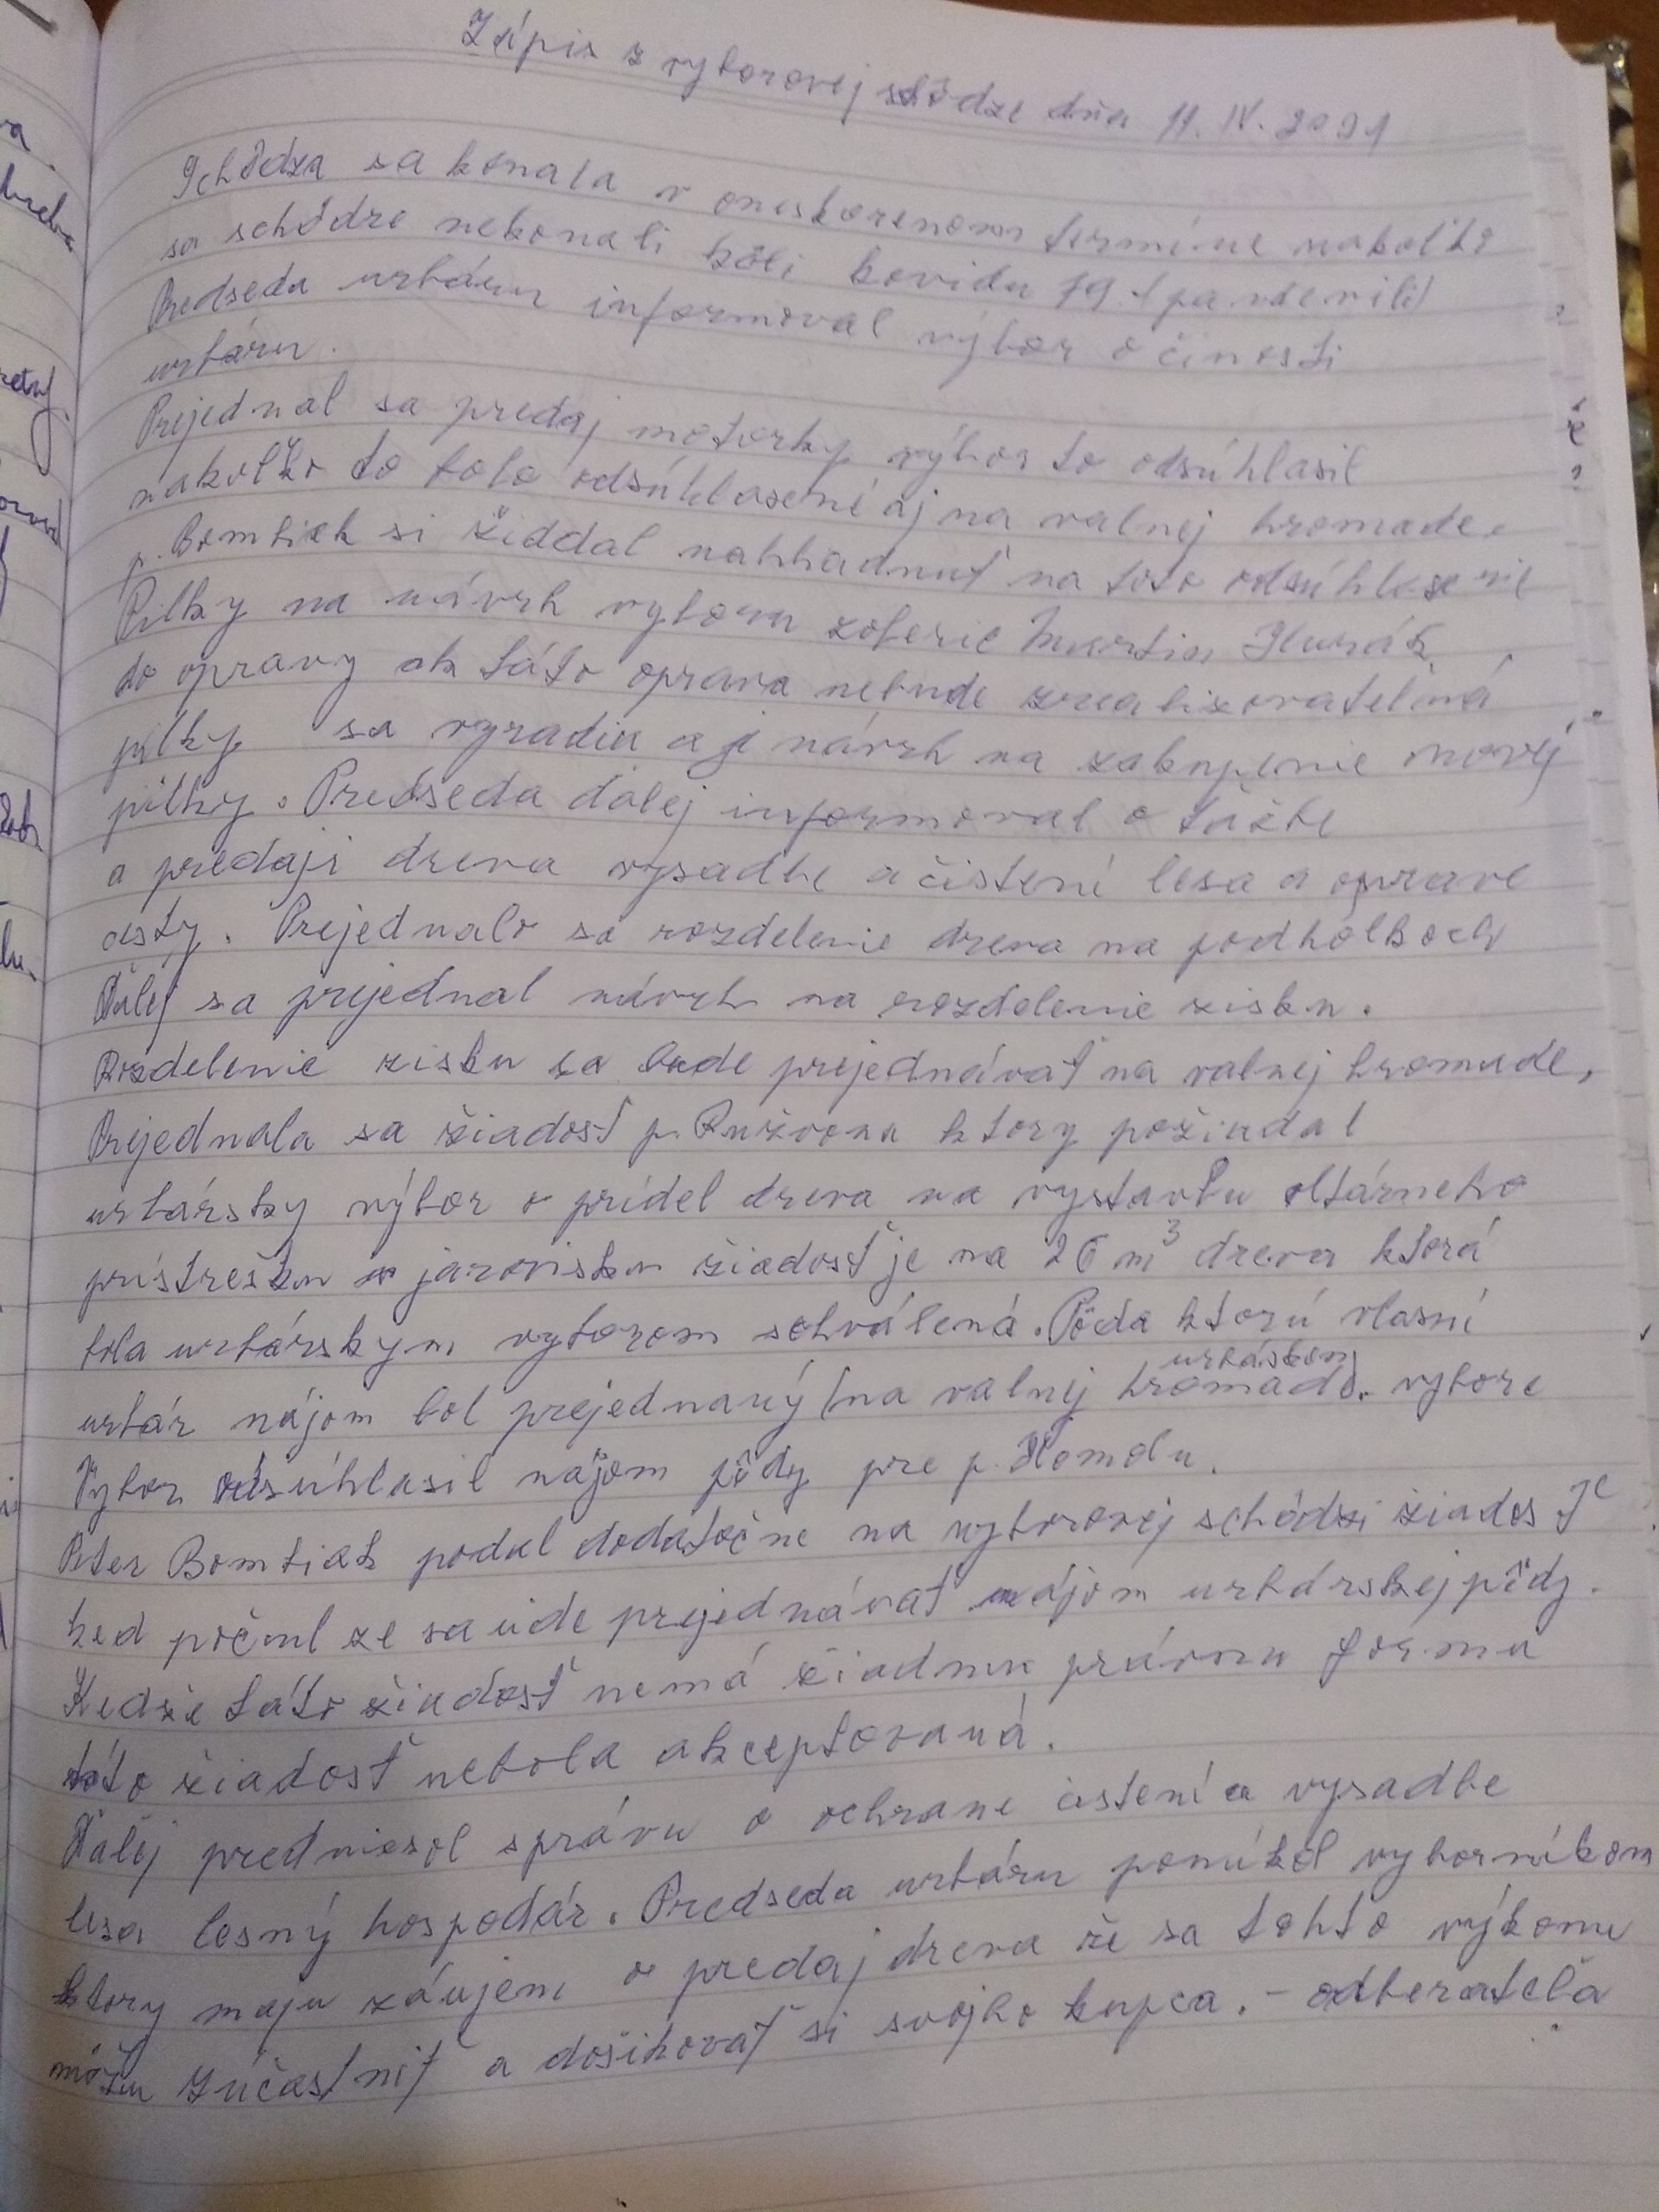 Zápis z vyborovej schôdze dňa 11. IV. 2021
Schôdza sa konala v oneskorenom termíne nakoľko
sa schôdze nekonali kôli kovidu 19
Predseda urbáru informoval výbor o činosti
urbáru.
Prejednal sa predaj motorky výbor to odsúhlasil
nakoľko to bolo odsúhlasené aj na valnej hromade.
p. Bomtiak si židdal nahliadnuť na toto odsúhlasenie
Pilky na návrh vyboru zoberie Martin
do opravy ak táto oprava nebude zrealizovateľná
pilky sa vyradia a je návrh na zakupenie novej
pilky. Predseda ďalej informoval o tažbe
a predaji dreva vysadbe a čistení lesa a oprave
cesty. Prejednalo sa rozdelenie dreva na podholkoch
Ďalej sa prejednal návrh na rozdelenie zisku.
Rozdelenie zisku sa bude prejednávať na valnej hromade,
Prejednala sa žiadosť p. ktory požiadal
urbársky výbor o prídel dreva na vystavbu oltárneho
prístrešku v jarovisku žiadosť je na 26 m³ dreva ktorá
bola urbárskym vyborom schválená. Pôda ktorú vlasní
urbárskom
urbár nájom bol prejednaný na valnej hromade. vybore
Vybor odsúhlasil nájom pôdy pre p. Homolu.
Peter Bomtiak podal dodatočne na vyborovej schôdzi žiadosť
keď počul ze sa ide prejednávať nájom urbárskej pôdy.
Kedže táto žiadosť nemá žiadnu právnu formu
táto žiadosť nebola akceptovaná.
Ďalej predniesol správu o ochrane čistení a vysadbe
lesa lesný hospodár. Predseda urbáru ponúkol vyborníkom
ktory maju záujem o predaj dreva že sa tohto výkonu
môžu zúčastniť a došikovať si svojho kupca. - odberateľa